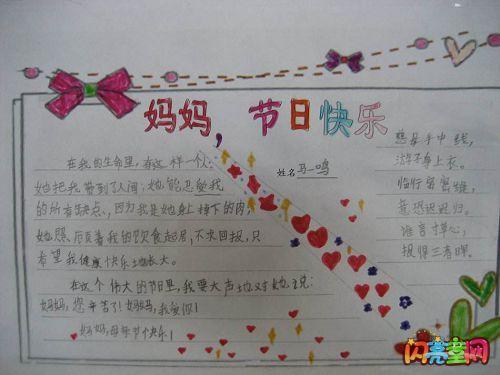 妈妈,节日快乐
姓名 马一鸣
在我的生命里,有这样一个人:
她把我带到人间;她能忍受我
的所有缺点,因为我是她身上掉下的肉;
她照顾着我的饮食起居,不求回报,只
希望我健康快乐地长大。
在这个伟大的节日里,我要大声地对她说:
妈妈,您辛苦了!妈妈,我爱你!
妈妈,母亲节快乐!
慈母手中线,
游子身上衣。
临行密密缝,
意恐迟迟归。
谁言寸草心,
报得三春晖。
闪亮童网